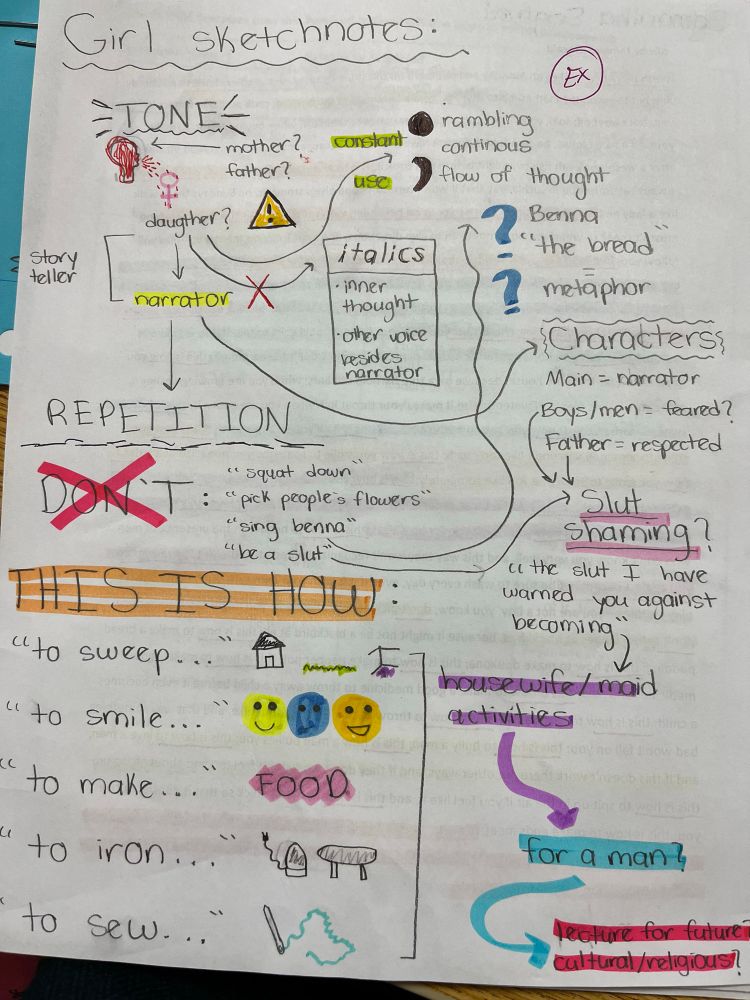 Girl sketchnotes:
EX
TONE
mother?
father?
daugther?
story
teller
narrator
constant
use
rambling
continous
flow of thought
italics
·inner
thought
·other voice
besides
narrator
Benna
"the bread"
=
metaphor
Characters
Main = narrator
Boys/men = feared?
Father = respected
REPETITION
DON'T:
"squat down"
"pick people's flowers"
"sing benna"
"be a slut"
Slut
shaming?
"the slut I have
warned you against
becoming"
THIS IS HOW:
"to sweep..."
"to smile..."
"to make..." FOOD
"to iron..."
"to sew..."
housewife/maid
activities
for a man?
lecture for future?
cultural/religious?